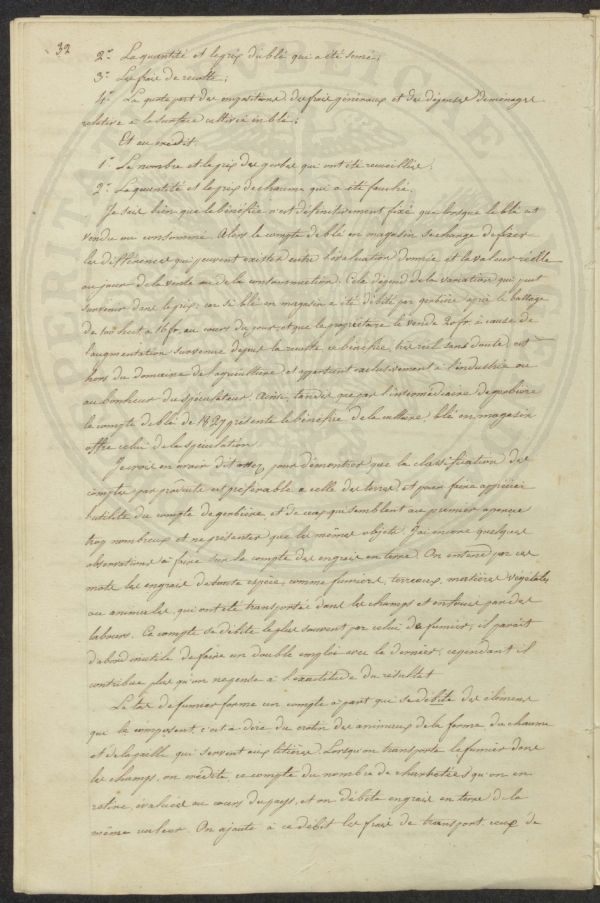 32
2° La quantité et le prix du blé qui a été semé;
3° Les frais de recolte;
4° La quote part des impositions, des frais généraux et des dépenses de ménage
relative à la surface cultivée en blé;
Et au crédit:
1° Le nombre et le prix des gerbes qui ont été recueillies;
2° La quantité et le prix du chaume qui a été fauché.
Je sais bien que le bénéfice n'est définitivement fixé que lorsque le blé est
vendu ou consommé. Alors le compte de blé en magasin se charge de fixer
les différences qui peuvent exister entre l'évaluation donnée, et la valeur réelle
au jour de la vente ou de la consommation. Cela dépend de la variation qui peut
survenir dans le prix; car si blé en magasin a été débité par gerbière après le battage
de 100 hect. à 16 fr. au cours du jour, et que le propriétaire le vende 20 fr. à cause de
l'augmentation survenue depuis la recolte ce bénéfice, très réel sans doute, est
hors du domaine de l'agriculture, et appartient exclusivement à l'industrie ou
au bonheur du spéculateur. Ainsi, tandis que par l'intermédiaire de gerbière
le compte de blé de 1827 présente le bénéfice de la culture, blé en magasin
offre celui de la spéculation.
Je crois en avoir dit assez pour démontrer que la classification des
comptes par produits est préférable à celle des terres, et pour faire apprécier
l'utilité du compte de gerbière et de ceux qui semblent au premier aperçu
trop nombreux et ne présenter que les mêmes objets. J'ai encore quelques
observations à faire sur le compte des engrais en terre. On entend par ces
mots les engrais de toute espèce, comme fumiers, terreaux, matières végétales
ou animales, qui ont été transportés dans les champs et enfouis par des
labours. Ce compte se débite le plus souvent par celui de fumier; il paraît
d'abord inutile de faire un double emploi avec le dernier, cependant il
contribue plus qu'on ne pense à l'exactitude du résultat.
Le tas de fumier forme un compte à part que se débite des élémens
que le composent, c'est à dire du crotin des animaux de la ferme, du chaume
et de la paille qui servent aux litières. Lorsqu'on transporte le fumier dans
les champs, on crédite ce compte du nombre de charretées qu'on en
retire, évaluées au cours du pays, et on débite engrais en terre de la
même valeur. On ajoute à ce débit les frais de transport, ceux de